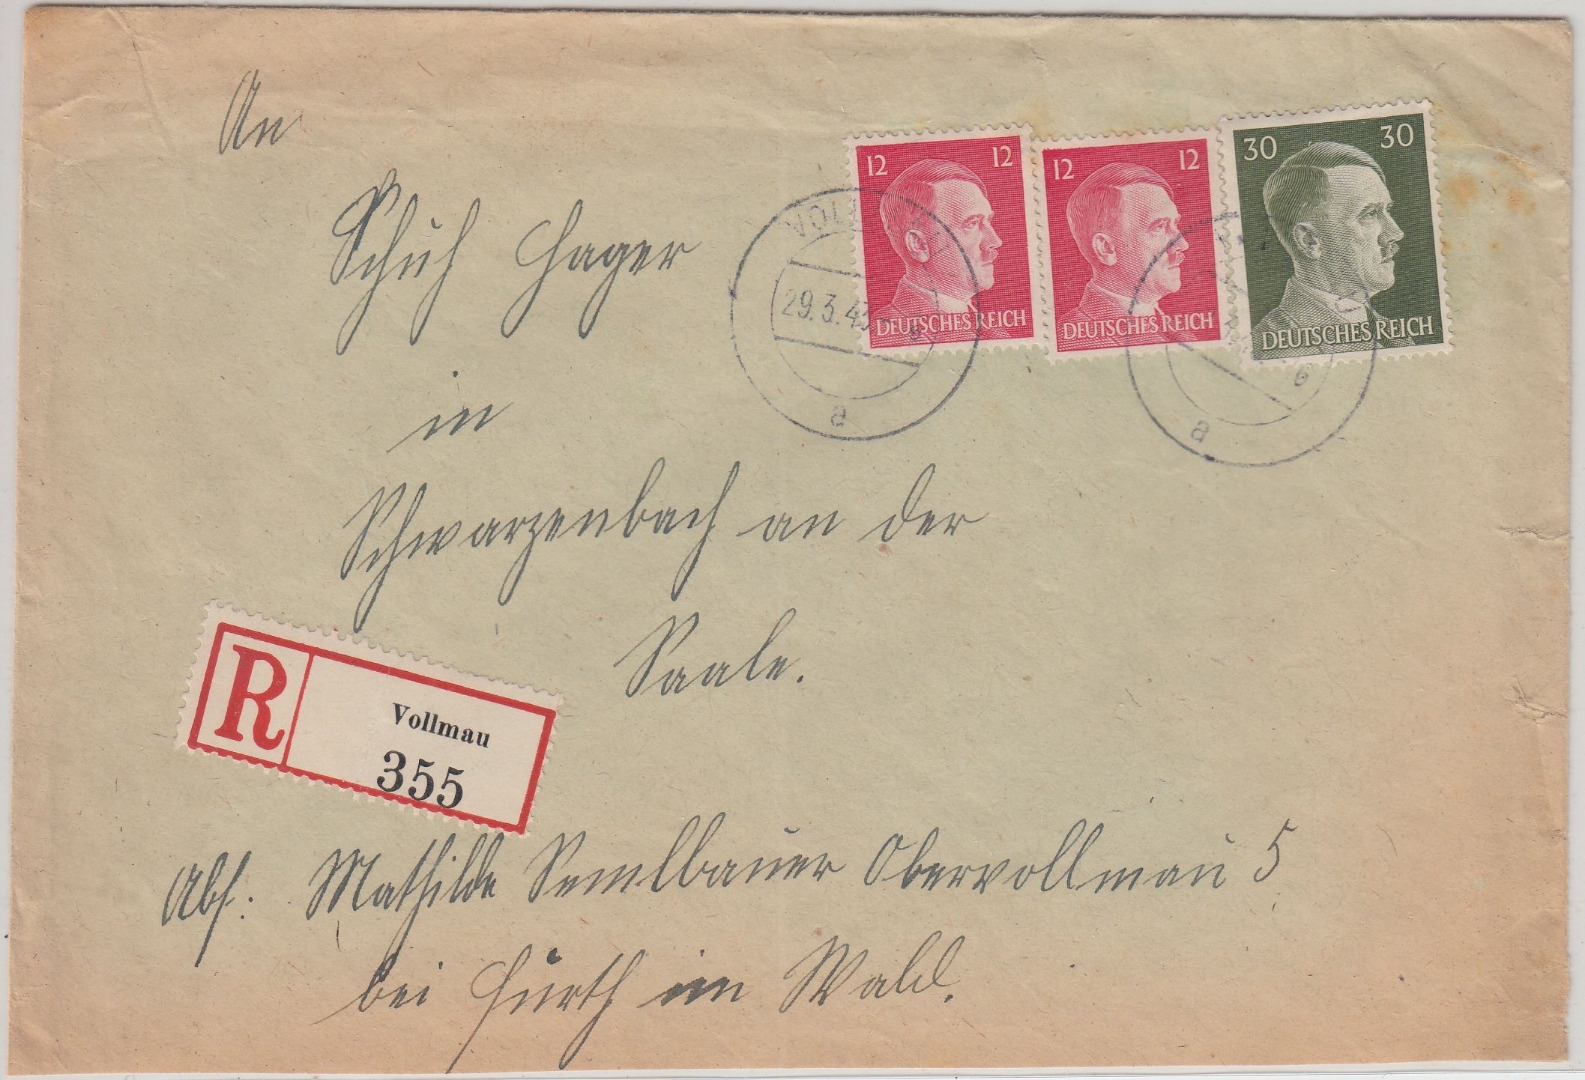 An
12 12
12 12
30 30
Schuh Hager
DEUTSCHES REICH
DEUTSCHES REICH
DEUTSCHES REICH
29.3.43
a
a
in
Schwarzenbach an der
Saale.
R
Vollmau
355
Abs: Mathilde Semlbauer Obervollmau 5
bei Furth im Wald.